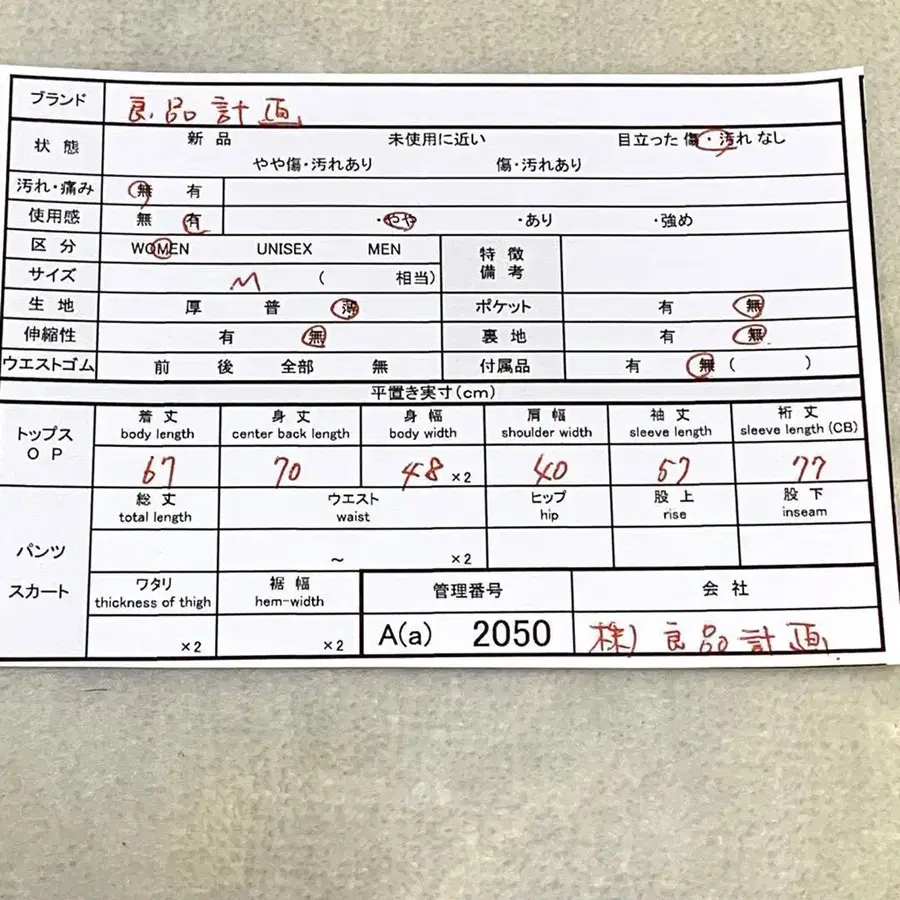 ブランド 良品計画
状態 新品 未使用に近い 目立った傷・汚れなし
やや傷・汚れあり 傷・汚れあり
汚れ・痛み 無 有
使用感 無 有 ・やや ・あり ・強め
区分 WOMEN UNISEX MEN 特徴
備考
サイズ M ( 相当)
生地 厚 普 薄 ポケット 有 無
伸縮性 有 無 裏地 有 無
ウエストゴム 前 後 全部 無 付属品 有 無 ( )
平置き実寸(cm)
トップス
OP
着丈 身丈 身幅 肩幅 袖丈 裄丈
body length center back length body width shoulder width sleeve length sleeve length (CB)
67 70 48 ×2 40 57 77
パンツ
スカート
総丈 ウエスト ヒップ 股上 股下
total length waist hip rise inseam
~ ×2
ワタリ 裾幅 管理番号 会社
thickness of thigh hem-width
×2 ×2 A(a) 2050 株)良品計画